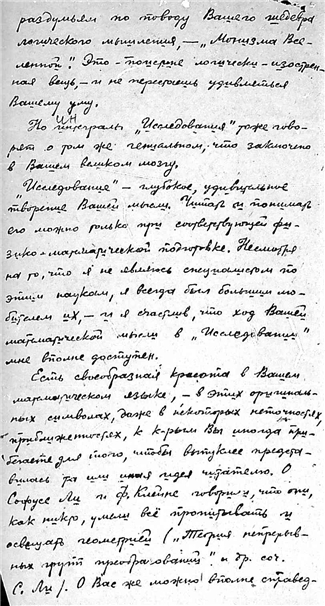 раздумьям по поводу Вашего шедевра
логического мышления, — „Монизма Все-
ленной“. Это – поистине логически-изострен-
ная вещь, – и не перестаешь удивляться
Вашему уму.
Но интегралы „Исследования“ тоже гово-
рят о том же гениальном, что заключено
в Вашем великом мозгу.
„Исследование“ – глубокое, удивительное
творение Вашей мысли. Читать и понимать
его можно только при соответствующей фи-
зико-математической подготовке. Несмотря
на то, что я не являюсь специалистом по
этим наукам, я всегда был большим лю-
бителем их, – и я счастлив, что ход Вашей
математической мысли в „Исследовании“
мне вполне доступен.
Есть своеобразная красота в Вашем
математическом языке, – в этих оригиналь-
ных символах, даже в некоторых неточностях,
приближенностях, к к-рым Вы иногда при-
бегаете для того, чтобы выпуклее предста-
вилась та или иная идея читателю. О
Софусе Ли и Ф. Клейне говорили, что они,
как никто, умели всё пропитывать и
освещать геометрией („Теория непрерыв-
ных групп преобразований“ и др. соч.
С. Ли). О Вас же можно вполне справед-